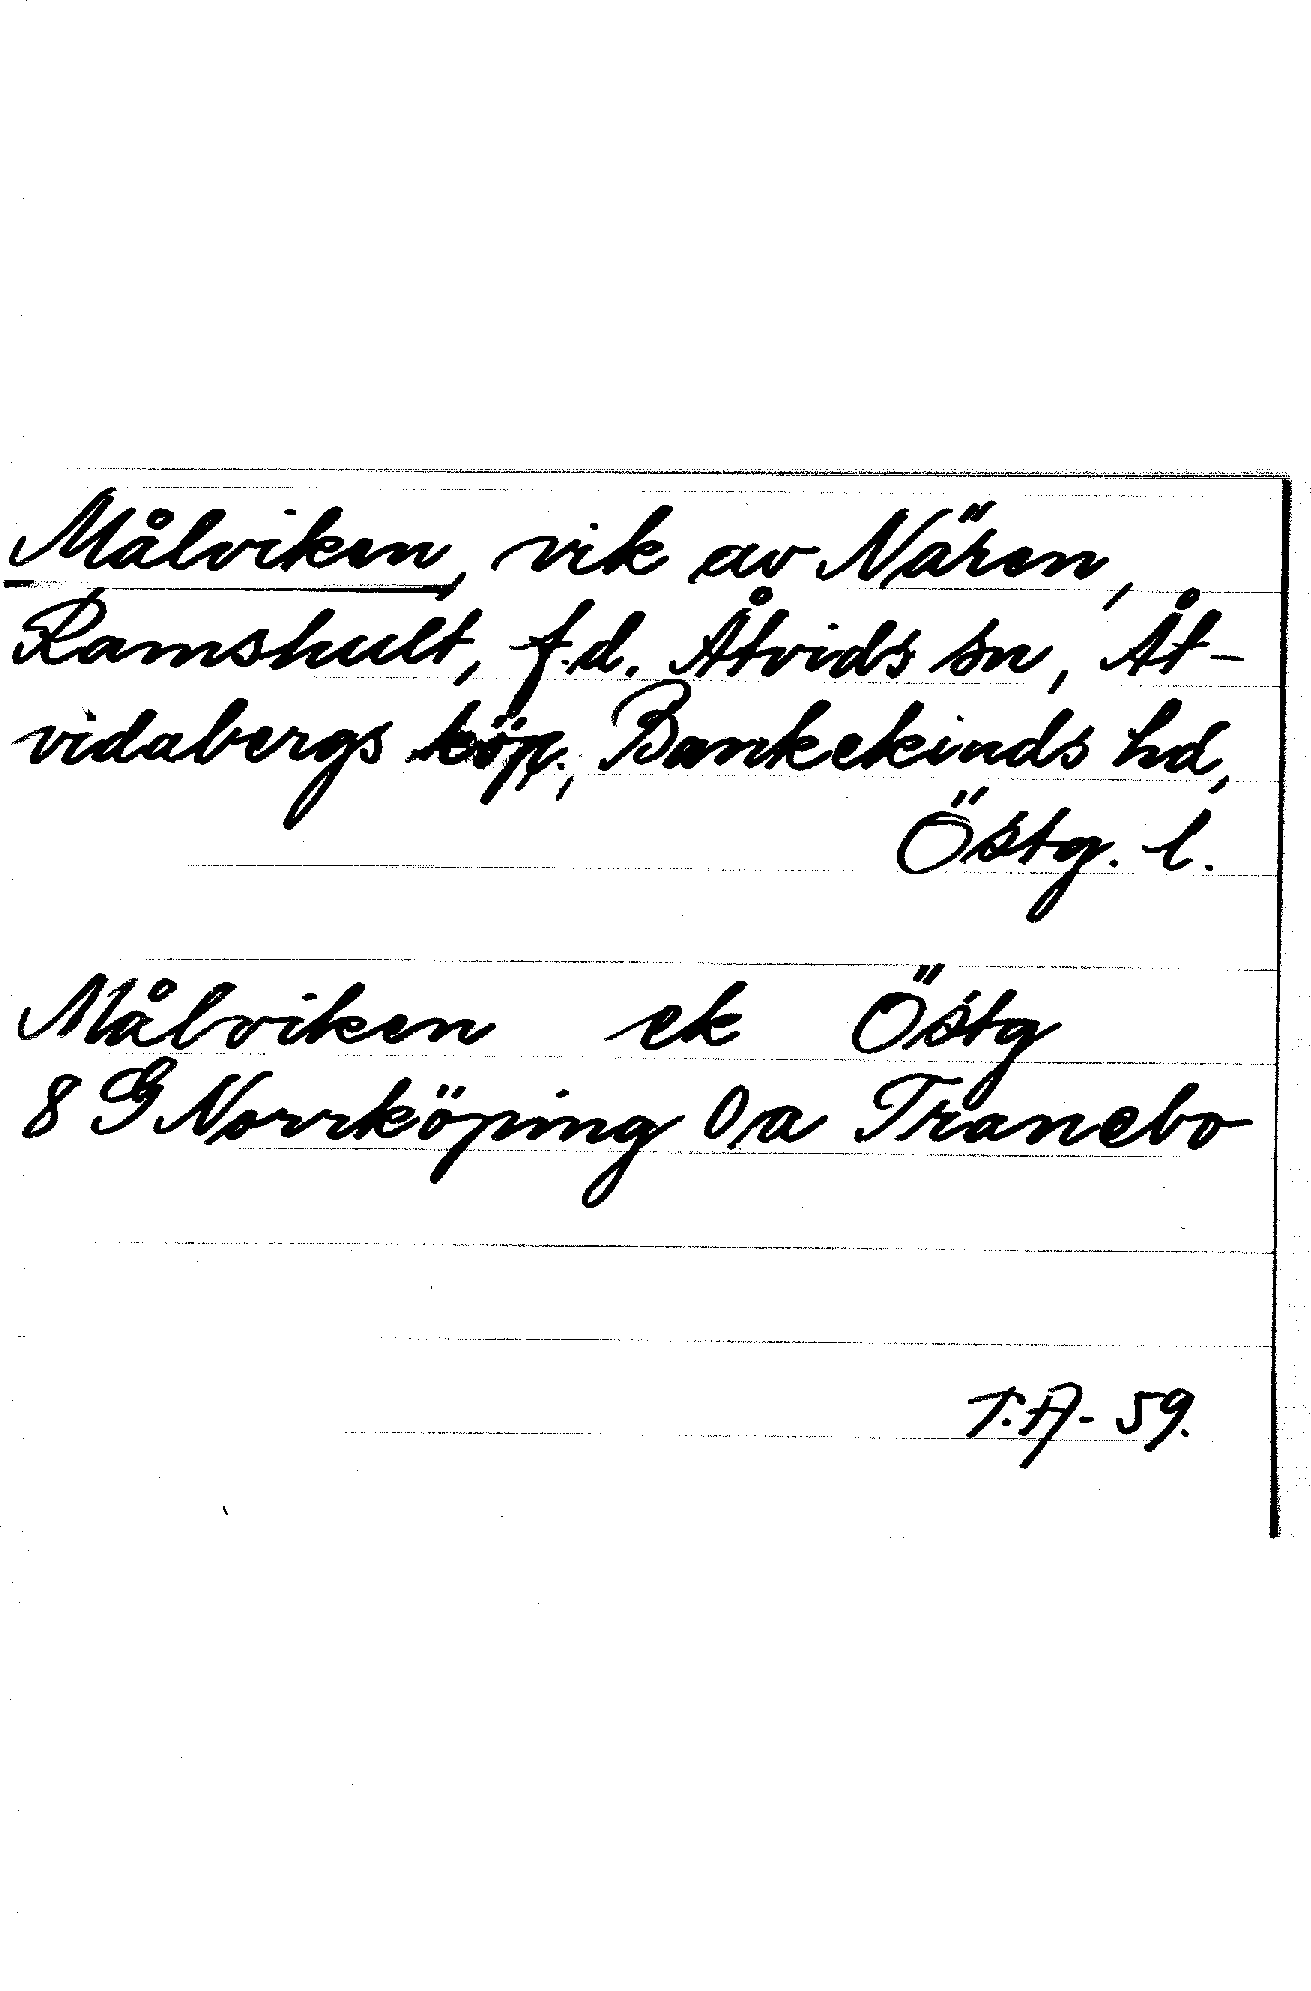 Målviken, vik av Nären,
Ramshult, f.d. Åtvids sn, Åt-
vidabergs köp., Bankekinds hd,
Östg. l.
Målviken ek Östg
8 G Norrköping 0/a Tranebo
T.A- 59.